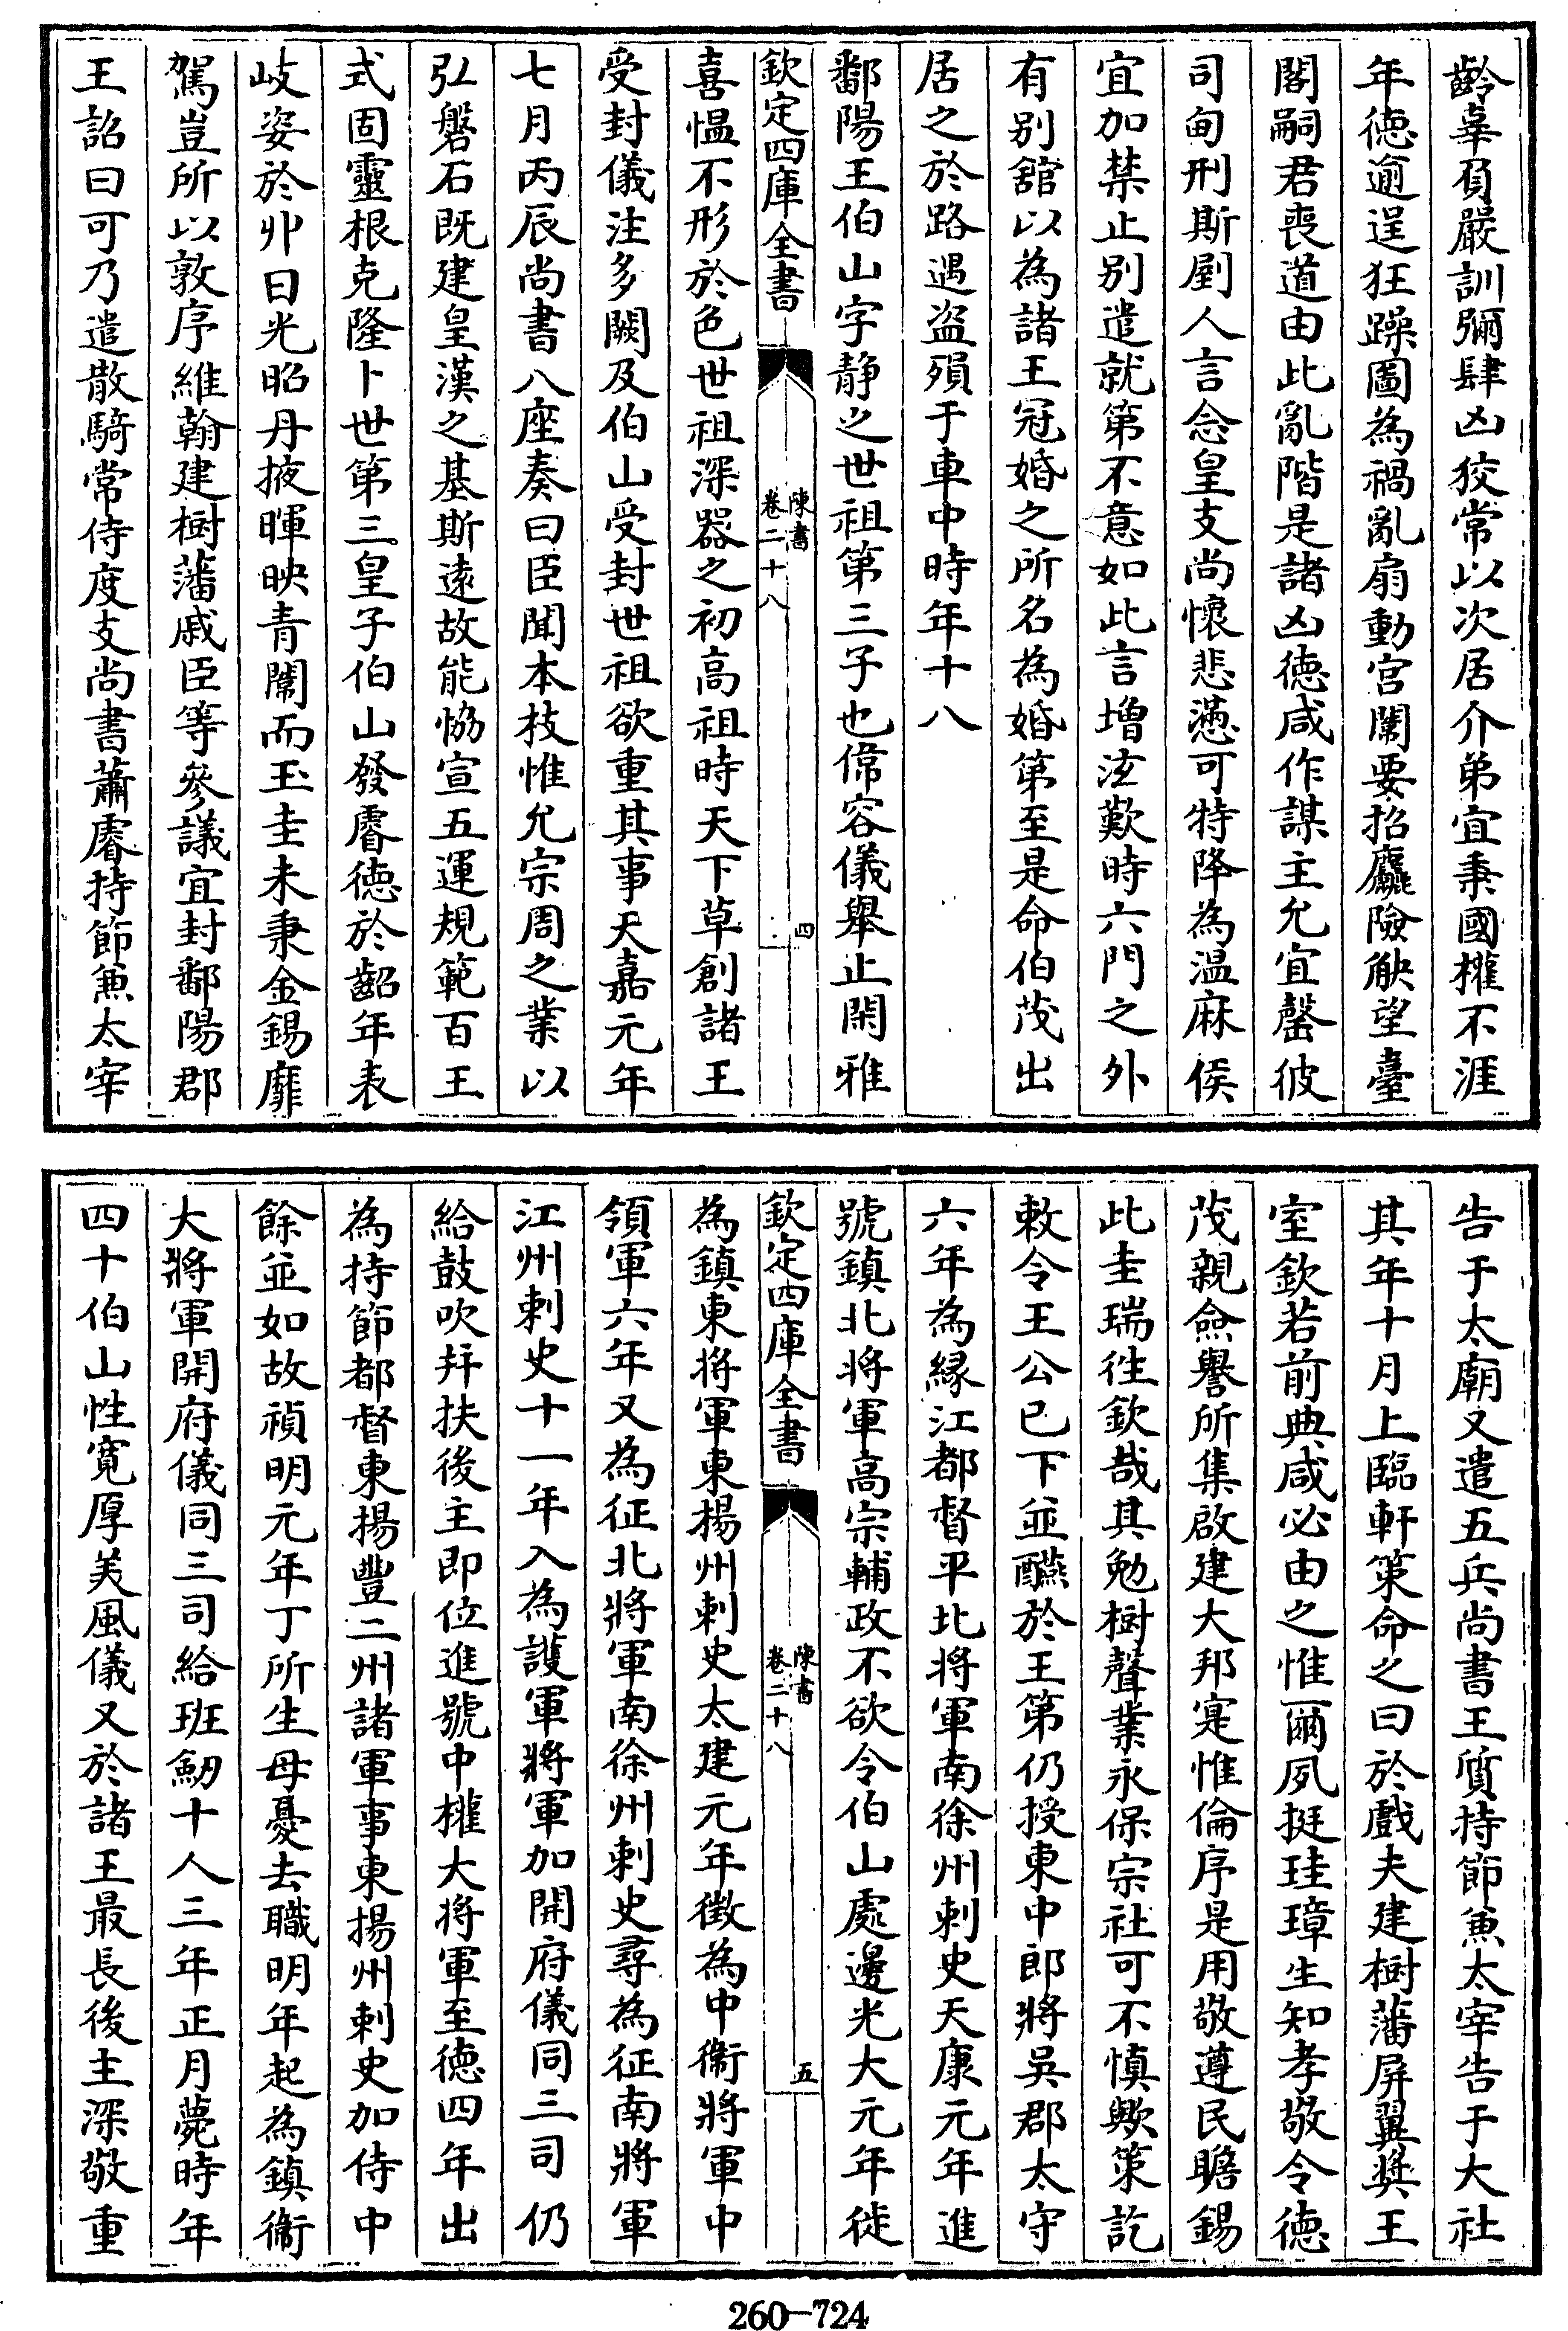 齡辜負嚴訓彌肆凶狡常以次居介弟宜秉國權不涯
年德逾逞狂躁圖為禍亂扇動宮闈要招麤險觖望臺
閣嗣君喪道由此亂階是諸凶徳咸作謀主允宜罄彼
司甸刑斯剭人言念皇支尚懷悲懣可特降為温麻侯
宜加禁止别遣就第不意如此言增泫歎時六門之外
有别館以為諸王冠婚之所名為婚第至是命伯茂出
居之於路遇盜殞于車中時年十八
鄱陽王伯山字靜之世祖第三子也偉容儀舉止閑雅
欽定四庫全書
陳書
卷二十八
四
喜愠不形於色世祖深器之初高祖時天下草創諸王
受封儀注多闕及伯山受封世祖欲重其事天嘉元年
七月丙辰尚書八座奏曰臣聞本枝惟允宗周之業以
弘磐石既建皇漢之基斯逺故能恊宣五運規範百王
式固靈根克隆卜世第三皇子伯山發睿徳於齠年表
岐姿於丱日光昭丹掖暉映青闈而玉圭未秉金錫靡
駕豈所以敦序維翰建樹藩戚臣等參議宜封鄱陽郡
王詔曰可乃遣散騎常侍度支尚書蕭睿持節兼太宰
告于太廟又遣五兵尚書王質持節兼太宰告于大社
其年十月上臨軒策命之曰於戲夫建樹藩屏翼奬王
室欽若前典咸必由之惟爾夙挺珪璋生知孝敬令徳
茂親僉譽所集啟建大邦寔惟倫序是用敬遵民瞻錫
此圭瑞徃欽哉其勉樹聲業永保宗社可不慎歟策訖
敕令王公已下並醼於王第仍授東中郎將吳郡太守
六年為縁江都督平北將軍南徐州刺史天康元年進
號鎮北將軍高宗輔政不欲令伯山處邊光大元年徙
欽定四庫全書
陳書
卷二十八
五
為鎮東將軍東揚州刺史太建元年徵為中衞將軍中
領軍六年又為征北將軍南徐州刺史尋為征南將軍
江州刺史十一年入為護軍將軍加開府儀同三司仍
給鼓吹并扶後主即位進號中權大將軍至徳四年出
為持節都督東揚豐二州諸軍事東揚州刺史加侍中
餘並如故禎明元年丁所生母憂去職明年起為鎮衞
大將軍開府儀同三司給班劒十人三年正月薨時年
四十伯山性寛厚美風儀又於諸王最長後主深敬重
260-724